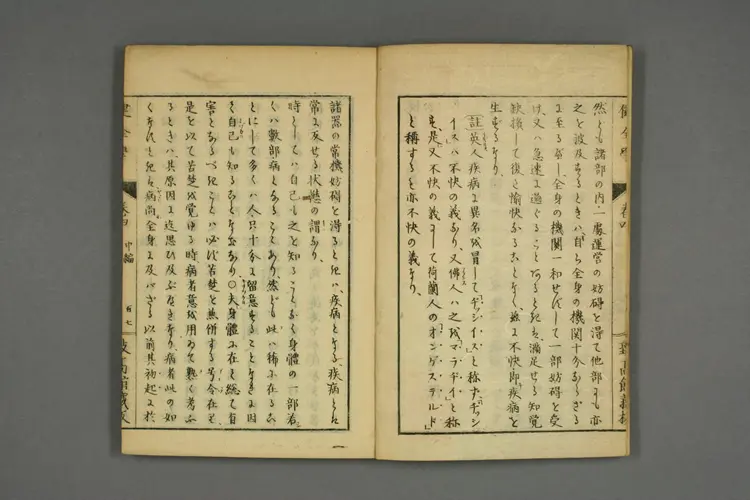 然ども諸部の内一處運営の妨碍を得て他部にも亦
之を波及するときハ、自ら全身の機関十分ならざる
に至るべし、全身の機関一和せずして一部妨碍を受
け又ハ急速に過ぐることあるときは、満足せる知覚
缺損して復た愉快なることなく、茲に不快即疾病を
生ずるなり
註 英人疾病に異名を冒して「ヂッシイス」と称す、「ヂッシ
イス」ハ不快の義なり、又佛人ハ之を「マラヂイ」と称
す、是又不快の義にして荷蘭人の「オンゲステルド」
と称するも亦不快の義なり、
諸器の常機妨碍を得るときハ、疾病となる疾病とは
常に反せる状態の謂なり
時としてハ自己も之を知ることなく身體の一部若
くハ數部病となることあり、然ども此ハ稀に在るこ
とにして多くハ人只十分に留意することなきに因
て自己も知ることなきなり〇夫身體に在て總て有
害となるべきことハ必ず苦楚を無併する者今在
是を以て苦楚を覚ゆる時病者意を用ゐて熟く考ふ
るときハ、其原因に迄思ひ及ぶべきなり、病者此の如
くすれば其病尚全身に及バざる以前其初起に於
健全學
巻四
中編
百七